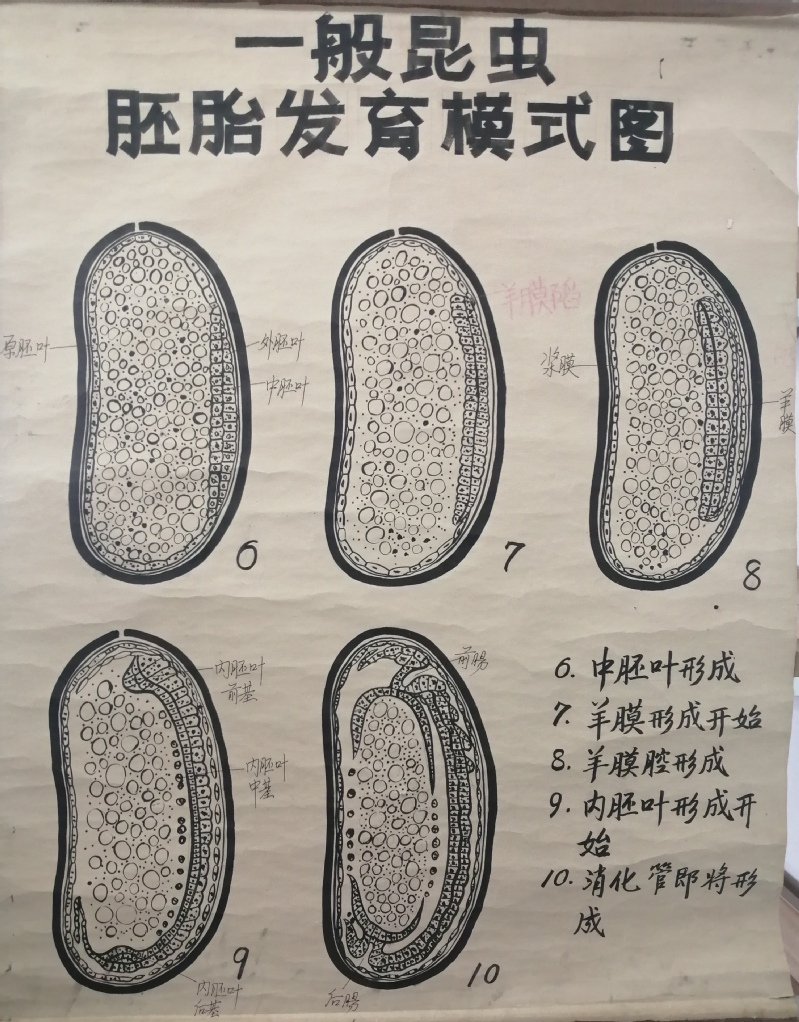 一般昆虫
胚胎发育模式图
原胚叶
外胚叶
中胚叶
6
羊膜陷
7
浆膜
羊膜
8
内胚叶
前基
内胚叶
中基
内胚叶
后基
9
前肠
后肠
10
6. 中胚叶形成
7. 羊膜形成开始
8. 羊膜腔形成
9. 内胚叶形成开
始
10. 消化管即将形
成